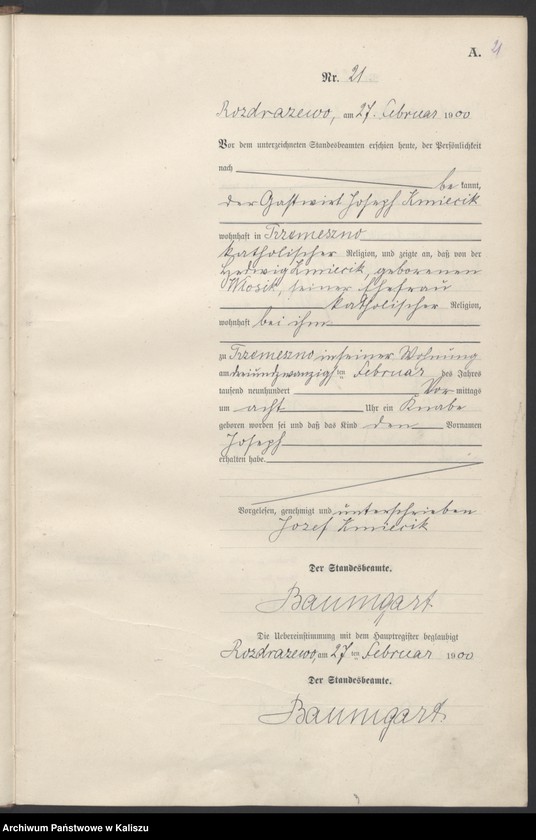 A. 21
Nr. 21
Rozdrazewo, am 27. Februar 1900
Vor dem unterzeichneten Standesbeamten erschien heute, der Persönlichkeit
nach
be kannt,
der Gastwirt Joseph Kmiecik
wohnhaft in Trzemeszno
katholischer Religion, und zeigte an, daß von der
Hedwig Kmiecik, geborenen
Wlosik, seiner Ehefrau
katholischer Religion,
wohnhaft bei ihm
zu Trzemeszno in seiner Wohnung
am dreiundzwanzigsten Februar des Jahres
tausend neunhundert Vor mittags
um acht Uhr ein Knabe
geboren worden sei und daß das Kind den Vornamen
Joseph
erhalten habe.
Vorgelesen, genehmigt und unterschrieben
Jozef Kmiecik
Der Standesbeamte.
Baumgart
Die Uebereinstimmung mit dem Hauptregister beglaubigt
Rozdrazewo, am 27 ten Februar 1900
Der Standesbeamte.
Baumgart.
Archiwum Państwowe w Kaliszu